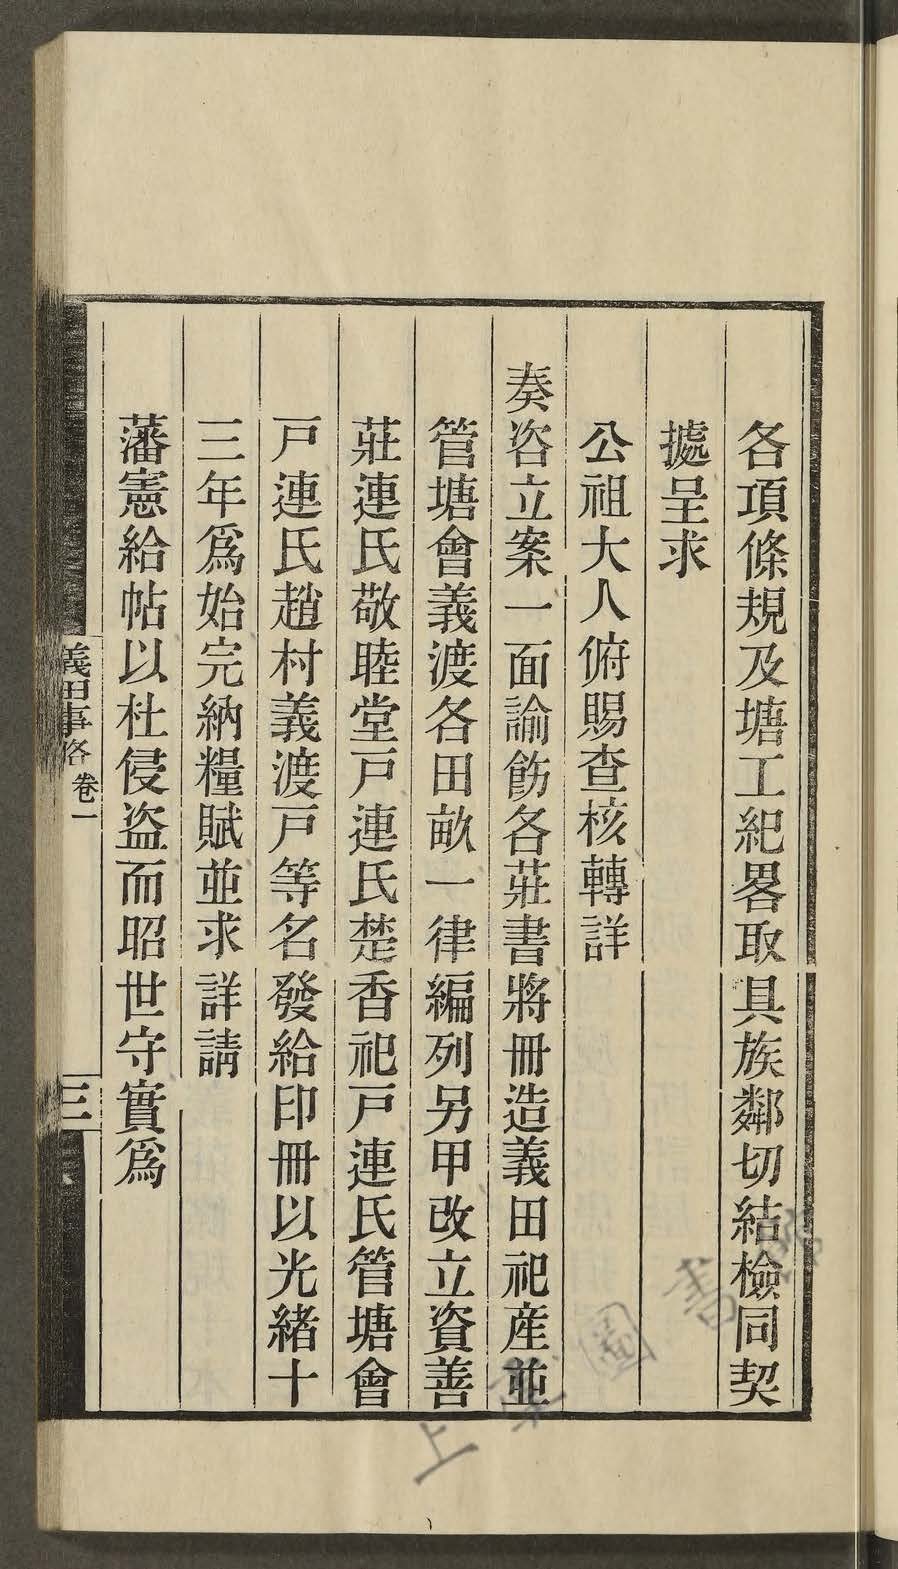 各項條規及塘工紀畧取具族鄰切結檢同契
㩀呈求
公祖大人俯賜查核轉詳
奏咨立案一面諭飭各莊書將冊造義田祀產並
管塘會義渡各田畝一律編列另甲改立資善
莊連氏敬睦堂戸連氏楚香祀戸連氏管塘會
戸連氏趙村義渡戸等名發給印冊以光緒十
三年爲始完納糧賦並求詳請
藩憲給帖以杜侵盜而昭世守實爲
義田事略 卷一
三
上海圖書館